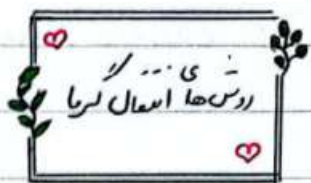 روش‌های انتقال گرما